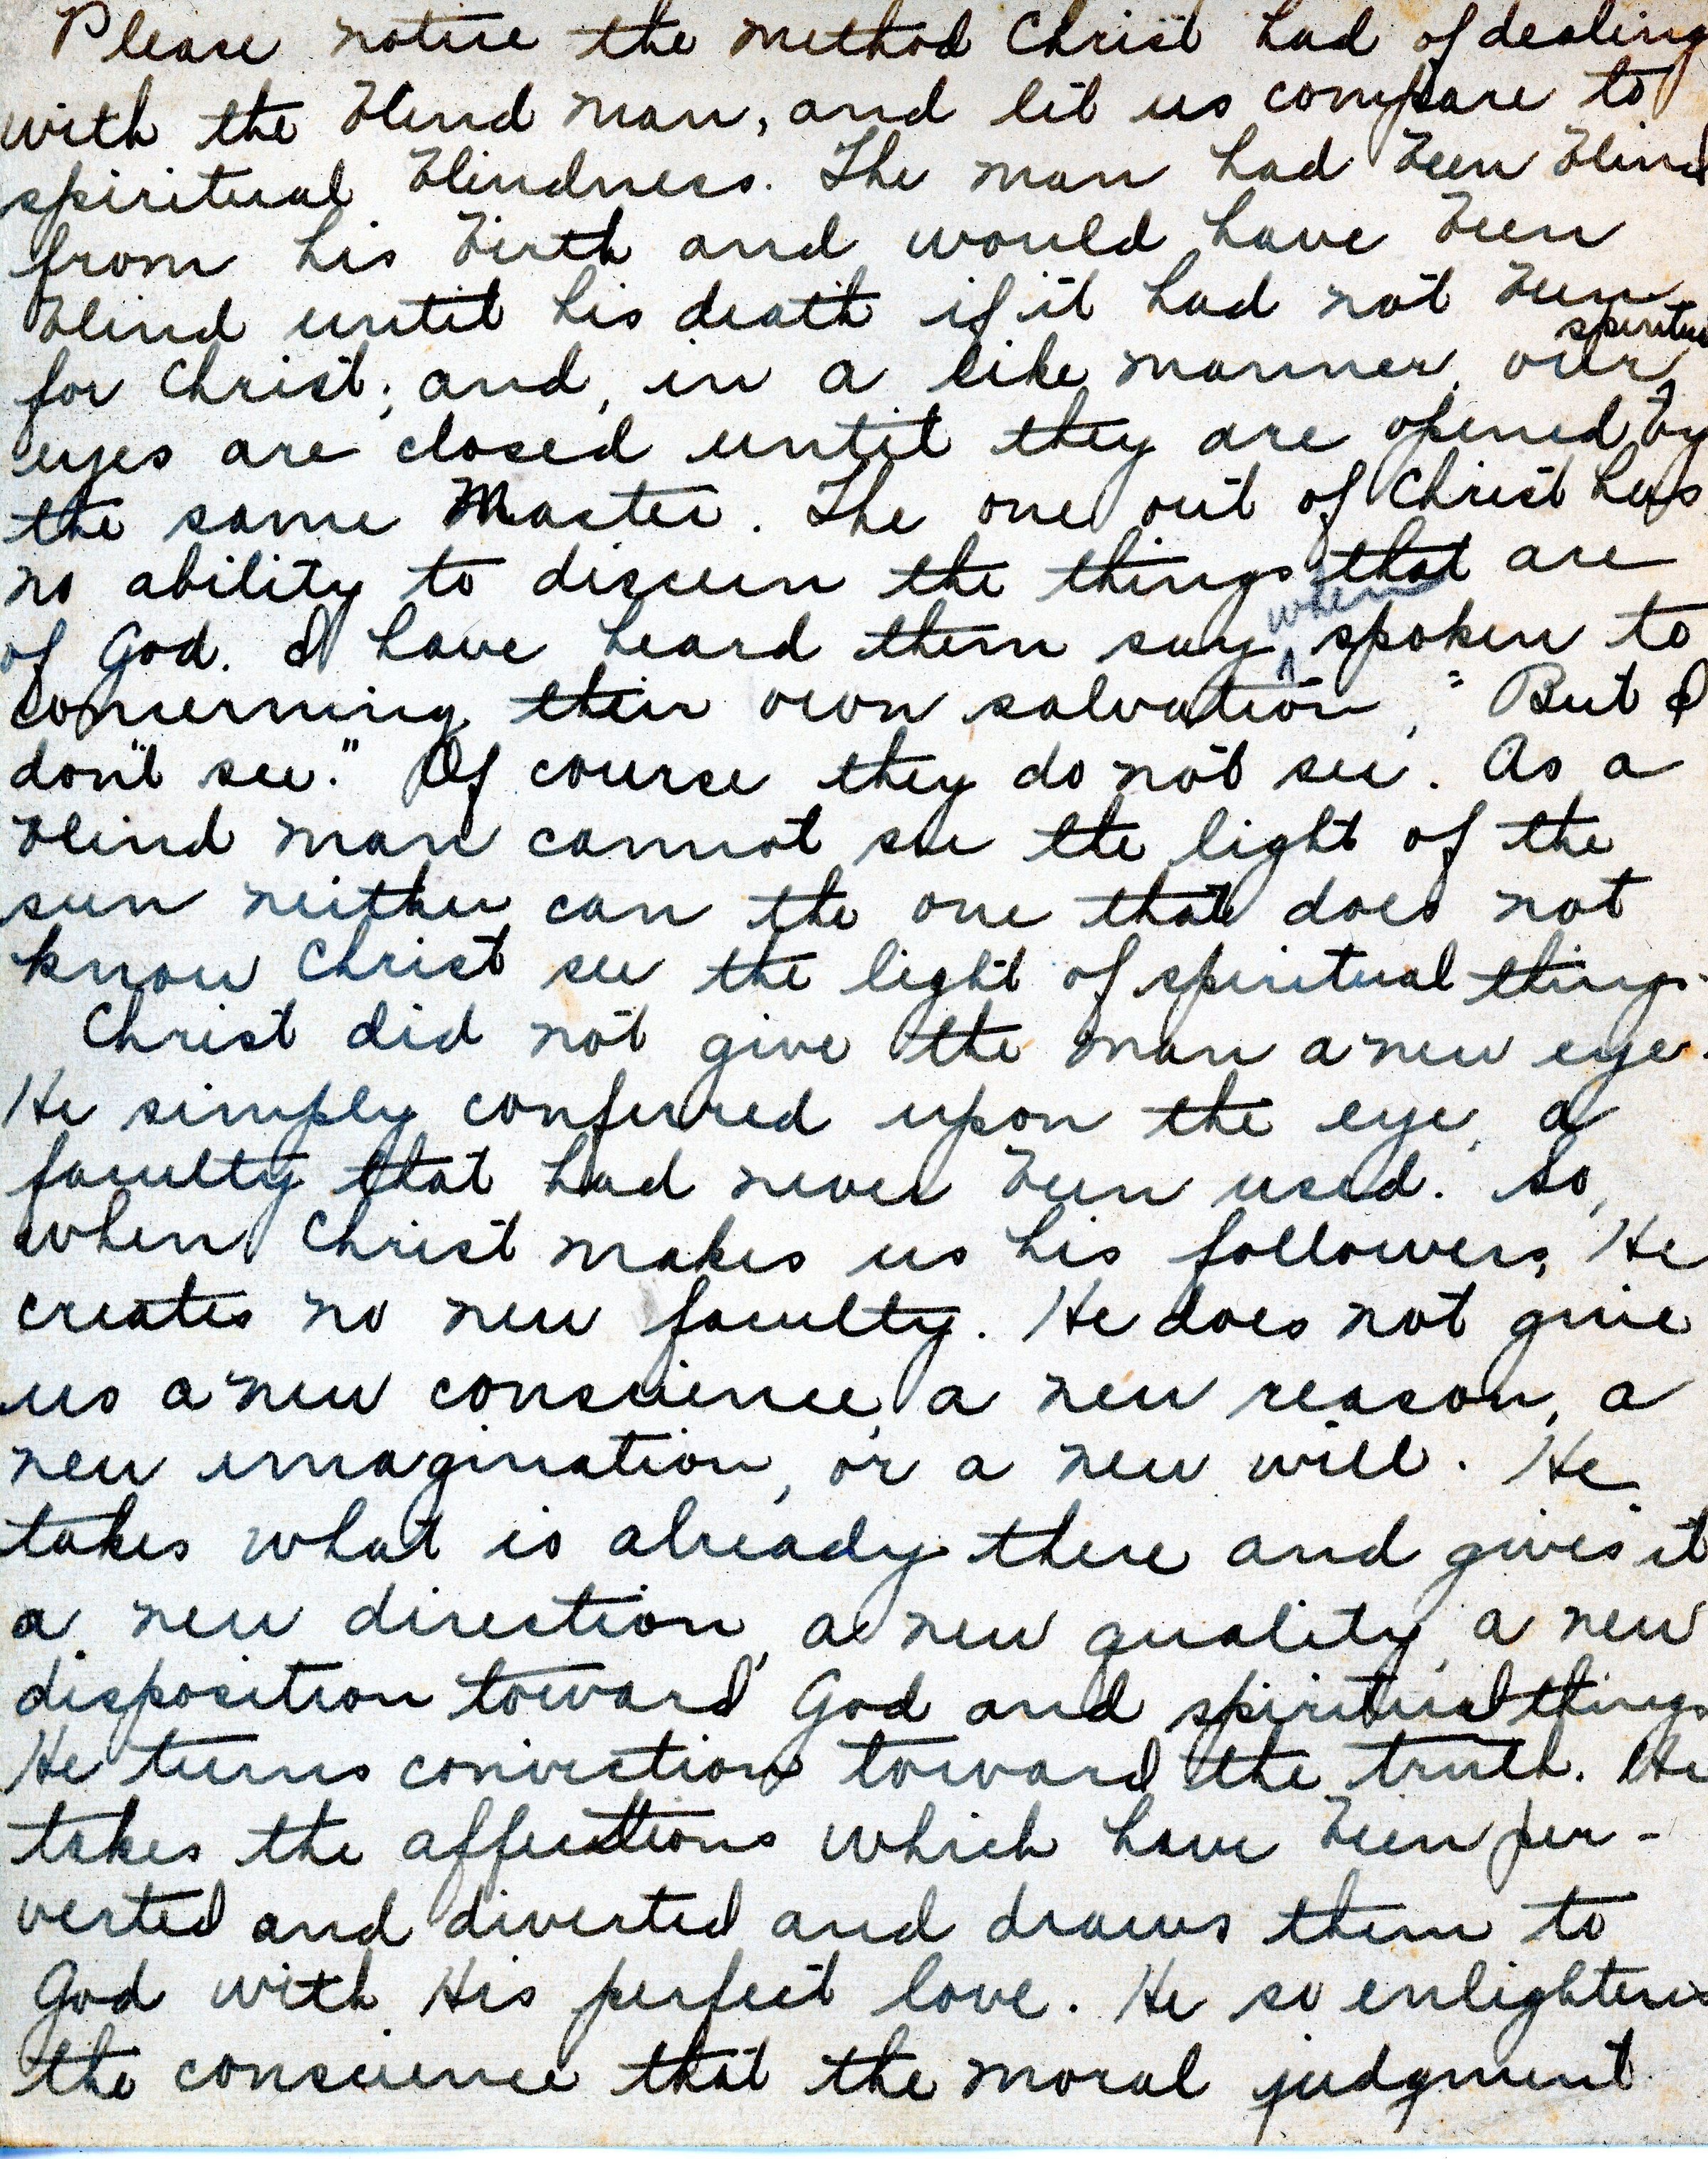 Please notice the method Christ had of dealing
with the blind man, and let us compare to
spiritual blindness. The man had been blind
from his birth and would have been
blind until his death if it had not been
for Christ; and, in a like manner, our spiritual
eyes are closed until they are opened by
the same Master. The one out of Christ has
no ability to discern the things that are
of God. I have heard them say, when spoken to
concerning their own salvation, "But I
don't see." Of course they do not see. As a
blind man cannot see the light of the
sun neither can the one that does not
know Christ see the light of spiritual things.
Christ did not give the man a new eye.
He simply conferred upon the eye, a
faculty that had never been used. So,
when Christ makes us his followers, He
creates no new faculty. He does not give
us a new conscience, a new reason, a
new imagination, or a new will. He
takes what is already there and gives it
a new direction, a new quality, a new
disposition toward God and spiritual things
He turns conviction toward the truth. He
takes the affections which have been per-
verted and diverted and draws them to
God with His perfect love. He so enlightens
the conscience that the moral judgment